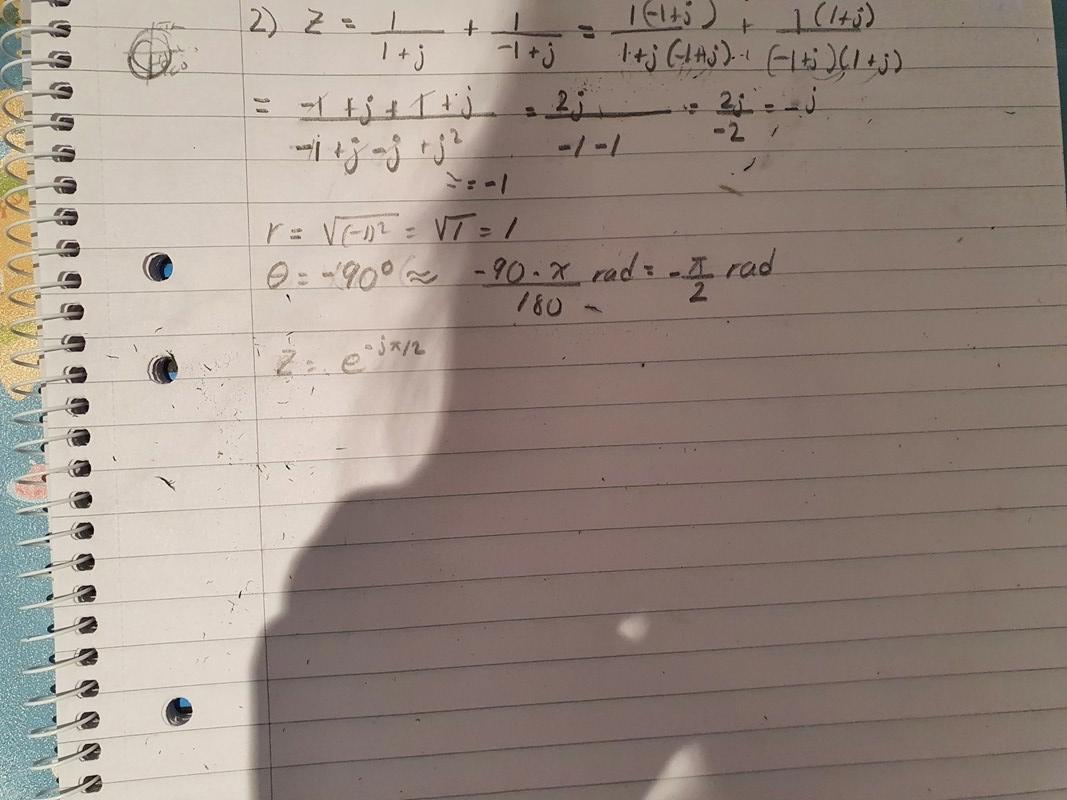 2) Z = 1/(1+j) + 1/(-1+j) = 1(-1+j)/(1+j(-1+j)) + 1(1+j)/((-1+j)(1+j))
= (-1+j+1+j)/(-1+j-j+j²) = 2j/(-1-1) = 2j/-2 = -j
= -1
r = √(-1)² = √1 = 1
θ = -90° ≈ (-90·π)/180 rad = -π/2 rad
Z = e^(-jπ/2)